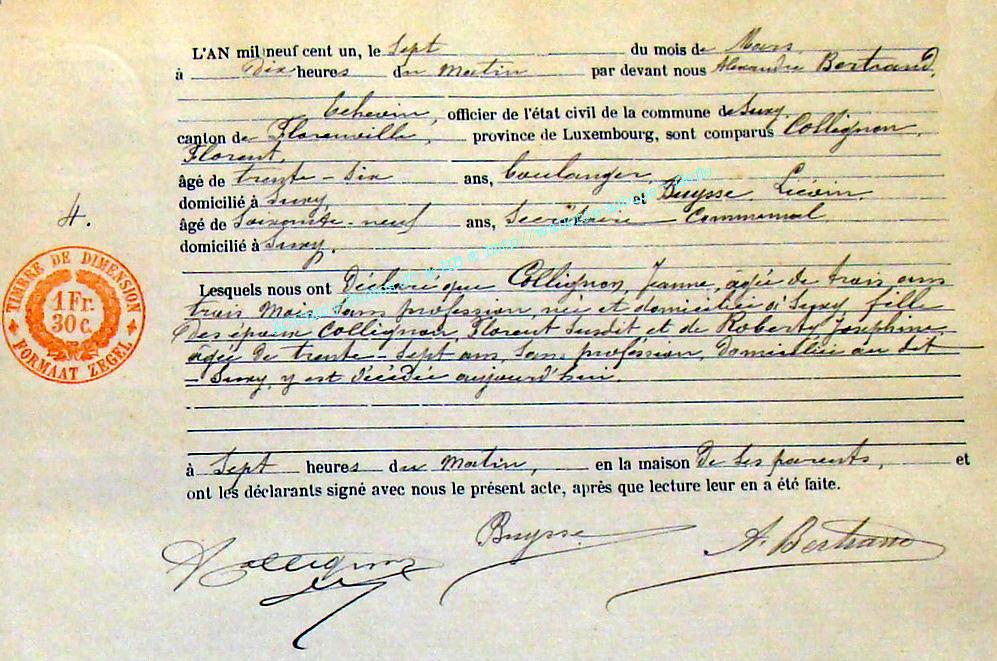 L'AN mil neuf cent un, le Sept du mois de Mars
à Dix heures du Matin par devant nous Alexandre Bertrand,
Echevin, officier de l'état civil de la commune de Suxy,
canton de Florenville, province de Luxembourg, sont comparus Collignon,
Florent,
âgé de trente-six ans, boulanger,
domicilié à Suxy et Buysse Liévin,
âgé de Soixante-neuf ans, Secrétaire Communal,
domicilié à Suxy.
Lesquels nous ont Déclaré que Collignon, Jeanne, âgée de trois ans
trois Mois, sans profession, née et domiciliée à Suxy, fille
des époux Collignon, Florent Susdit et de Robert, Joséphine,
âgée de trente-Sept ans, Sans profession, domiciliée au dit
Suxy, y est décédée aujourd'hui.
à Sept heures du Matin, en la maison de ses parents, et
ont les déclarants signé avec nous le présent acte, après que lecture leur en a été faite.
4.
TIMBRE DE DIMENSION
1 Fr.
30 c.
FORMAAT ZEGEL
Collignon
Buysse
A. Bertrand